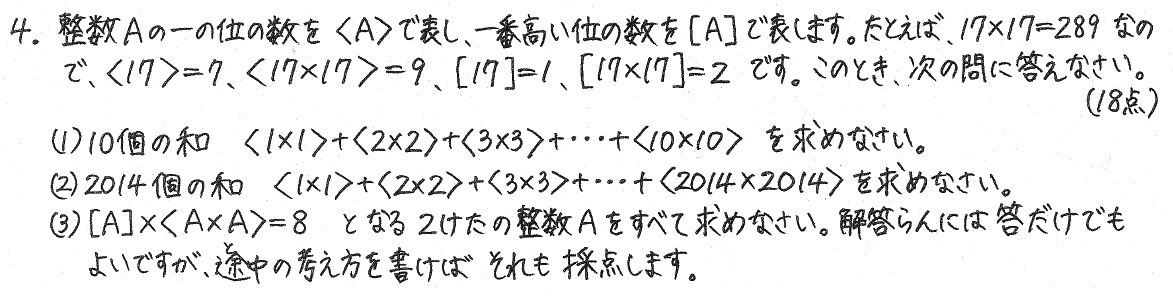 4. 整数Aの一の位の数を〈A〉で表し、一番高い位の数を[A]で表します。たとえば、17×17=289なの
で、〈17〉=7、〈17×17〉=9、[17]=1、[17×17]=2 です。このとき、次の問に答えなさい。
(18点)
(1)10個の和 〈1×1〉+〈2×2〉+〈3×3〉+…+〈10×10〉 を求めなさい。
(2)2014個の和 〈1×1〉+〈2×2〉+〈3×3〉+…+〈2014×2014〉を求めなさい。
(3)[A]×〈A×A〉=8 となる2けたの整数Aをすべて求めなさい。解答らんには答だけでも
よいですが、途中の考え方を書けば それも採点します。